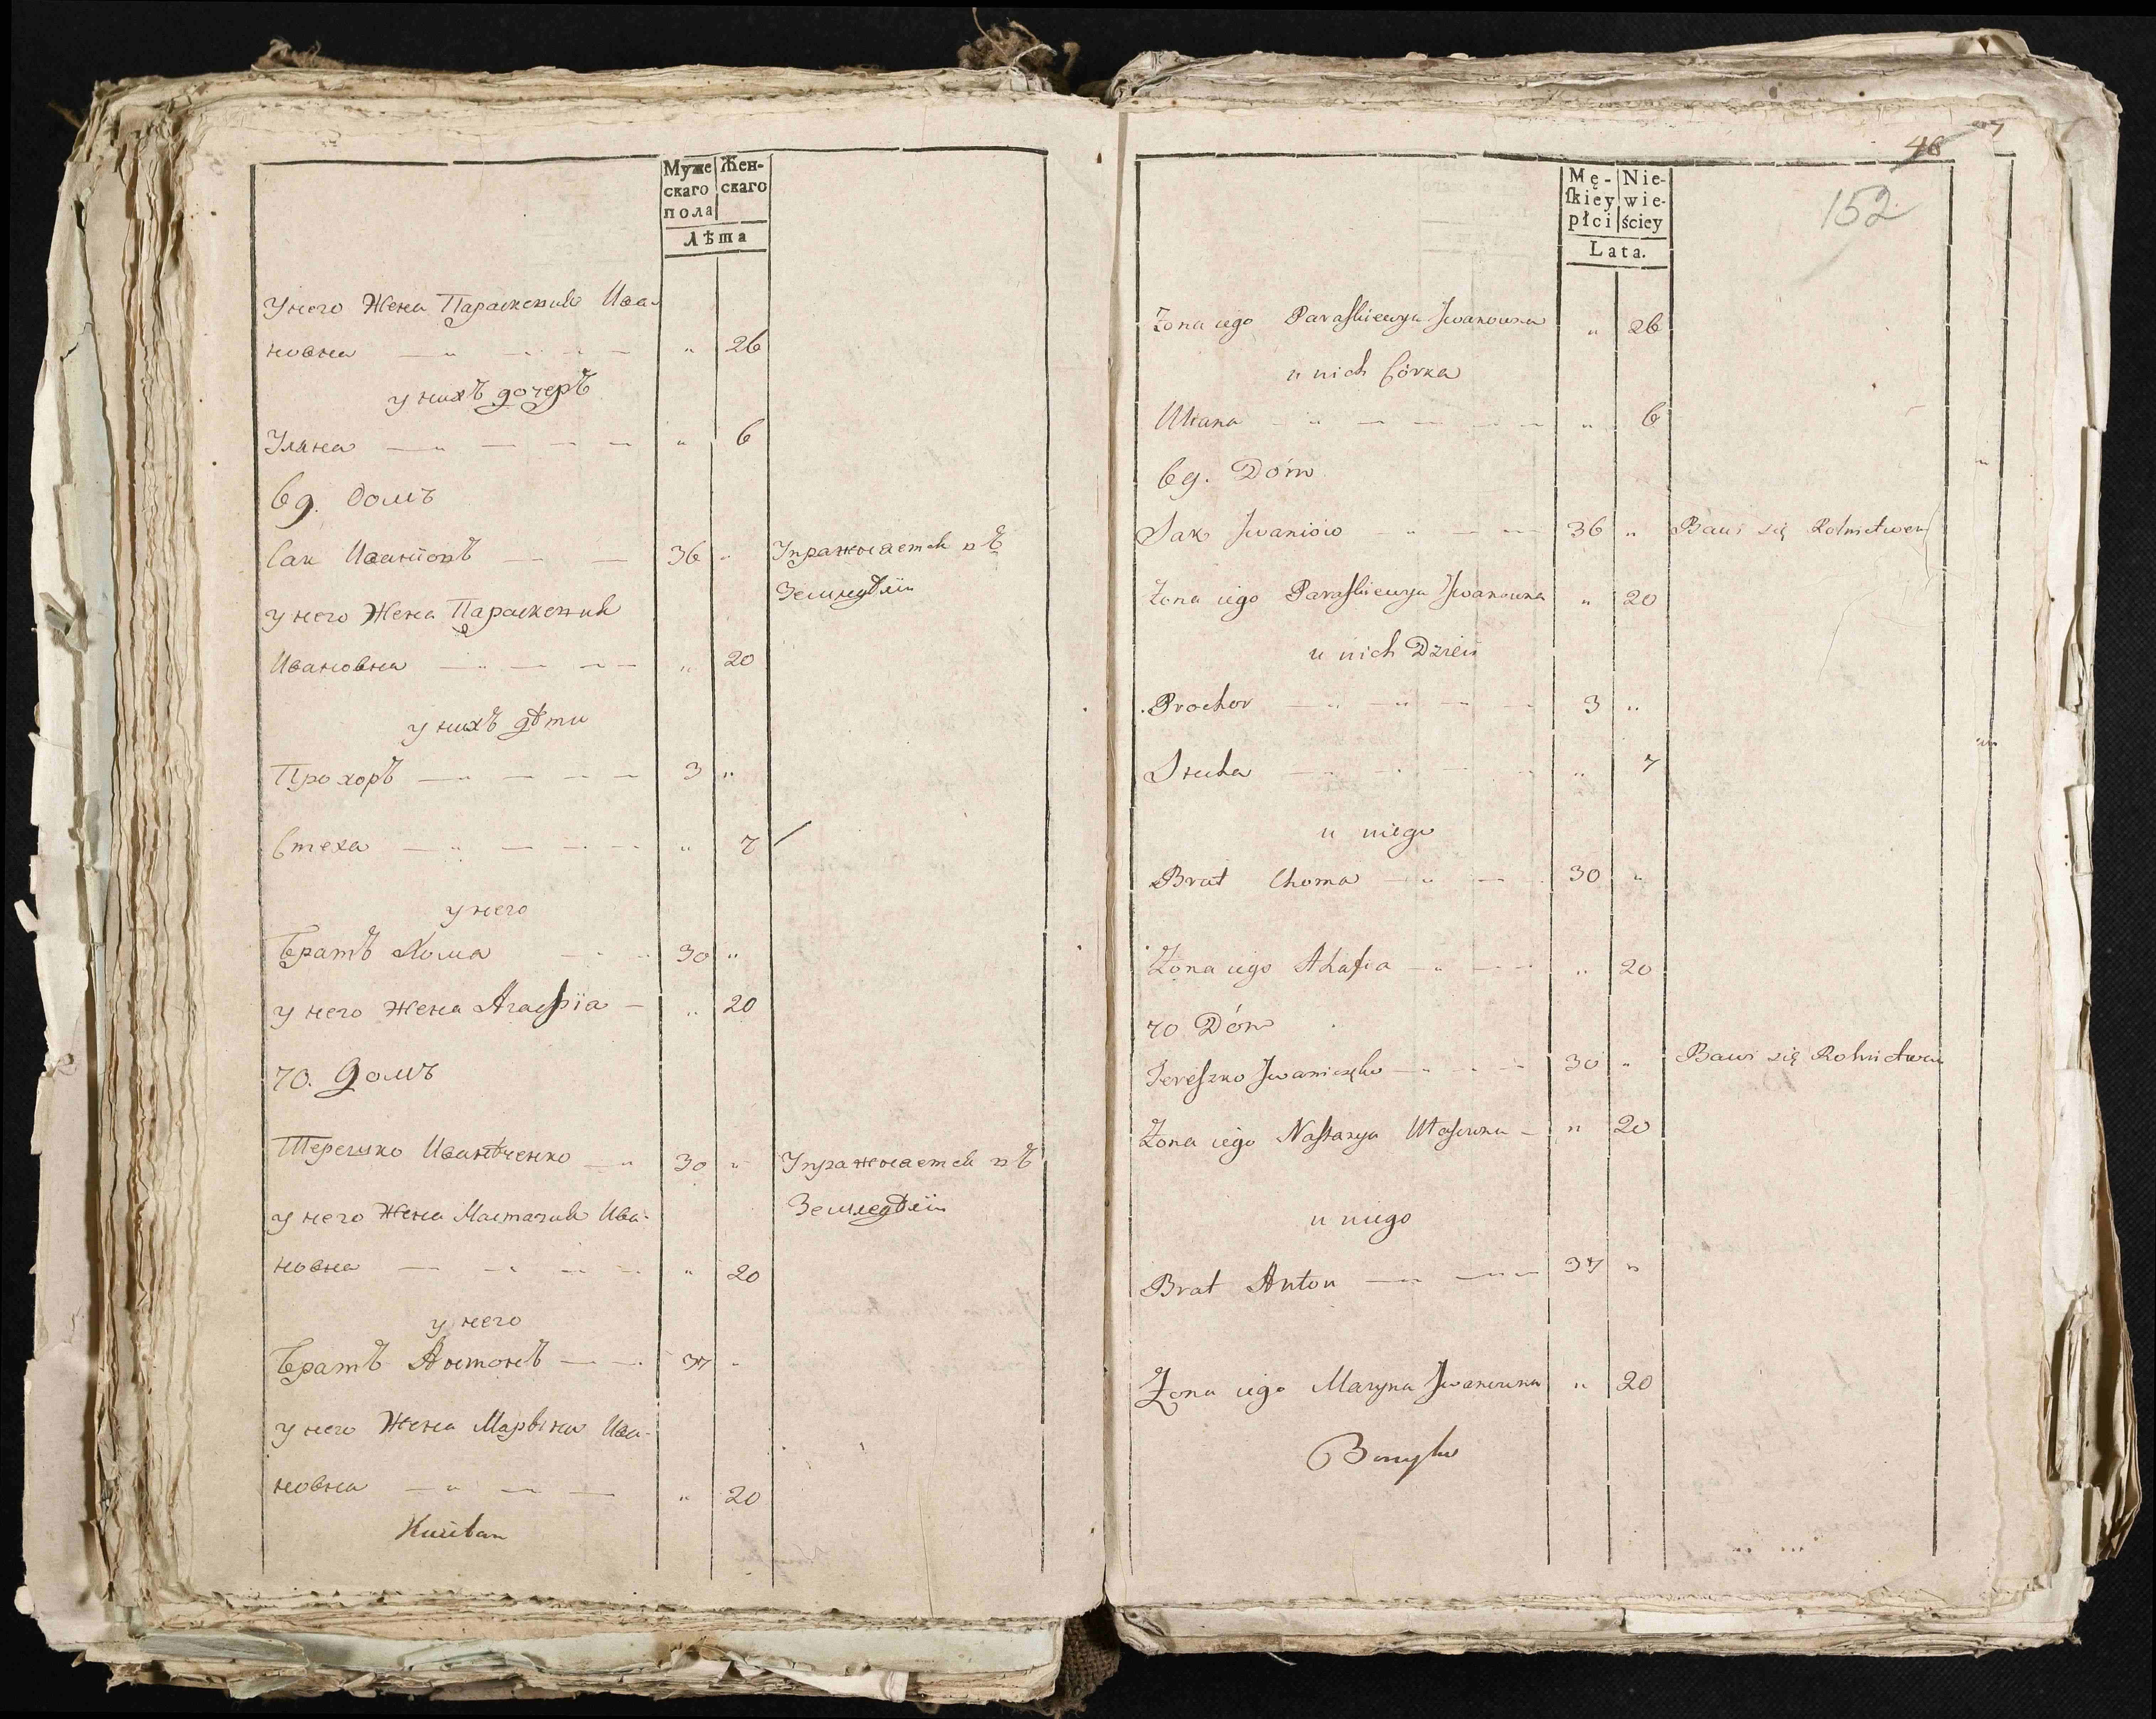 Муже Жен-
скаго скаго
пола
Лѣта
У него Жена Параскевия Ива-
новна — „ — — — „ 26
у нихъ дочеръ
Уляна — „ — — — „ 6
69. домъ
Сак Иванiовъ — — 36 „ Упражняется въ
Земледѣлiи
у него Жена Параскевия
Ивановна — „ — — „ 20
у нихъ дѣти
Прохоръ — „ — — — 3 „
Стеха — „ — — — „ 7
у него
Братъ Хома — 30 „
у него жена Агафiа — „ 20
70. Домъ
Терешко Иванѣченко — „ 30 „ Упражняется въ
Земледѣлiи
у него Жена Настазия Ива-
новна — — — — „ 20
у него
Братъ Антонъ — — 37 „
у него Жена Марына Ива-
новна — „ — — „ 20
48
152
Mę- Nie-
ſkiey wie-
płci ściey
Lata.
Żona iego Paraſkiewya Jwanowna „ 26
u nich Córka
Uliana — „ — — — „ 6
69. Dóm
Sak Jwaniów — „ — — 36 „ Bawi się Rolnictwem
Żona iego Paraſkiewya Jwanowna „ 20
u nich Dzieci
Prochor — „ — „ — 3 „
Steha — — — — „ 7
u niego
Brat Choma — „ — 30 „
Żona iego Ahafia — „ — „ 20
70 Dóm
Tereſzko Jwanieczko — „ — 30 „ Bawi się Rolnictwem
Żona iego Naſtazya Właſowna — „ 20
u niego
Brat Anton — „ — „ — 37 „
Żona iego Maryna Jwanowna „ 20